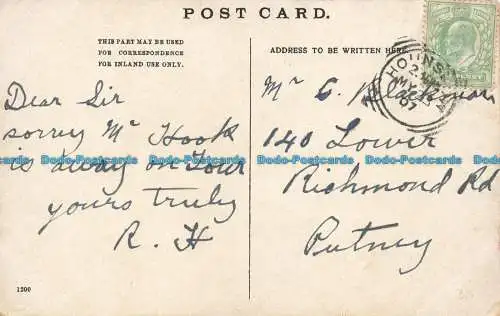 POST CARD.
THIS PART MAY BE USED
FOR CORRESPONDENCE
FOR INLAND USE ONLY.
ADDRESS TO BE WRITTEN HERE
HOUNSLOW
MY
07
Dear Sir
sorry Mr Hook
is away on Tour
yours truly
R. H
Mr C.
140 Lower
Richmond Rd
Putney
Dodo-Postcards Dodo-Postcards Dodo-Postcards Dodo-Postcards Dodo-Postcards
1200